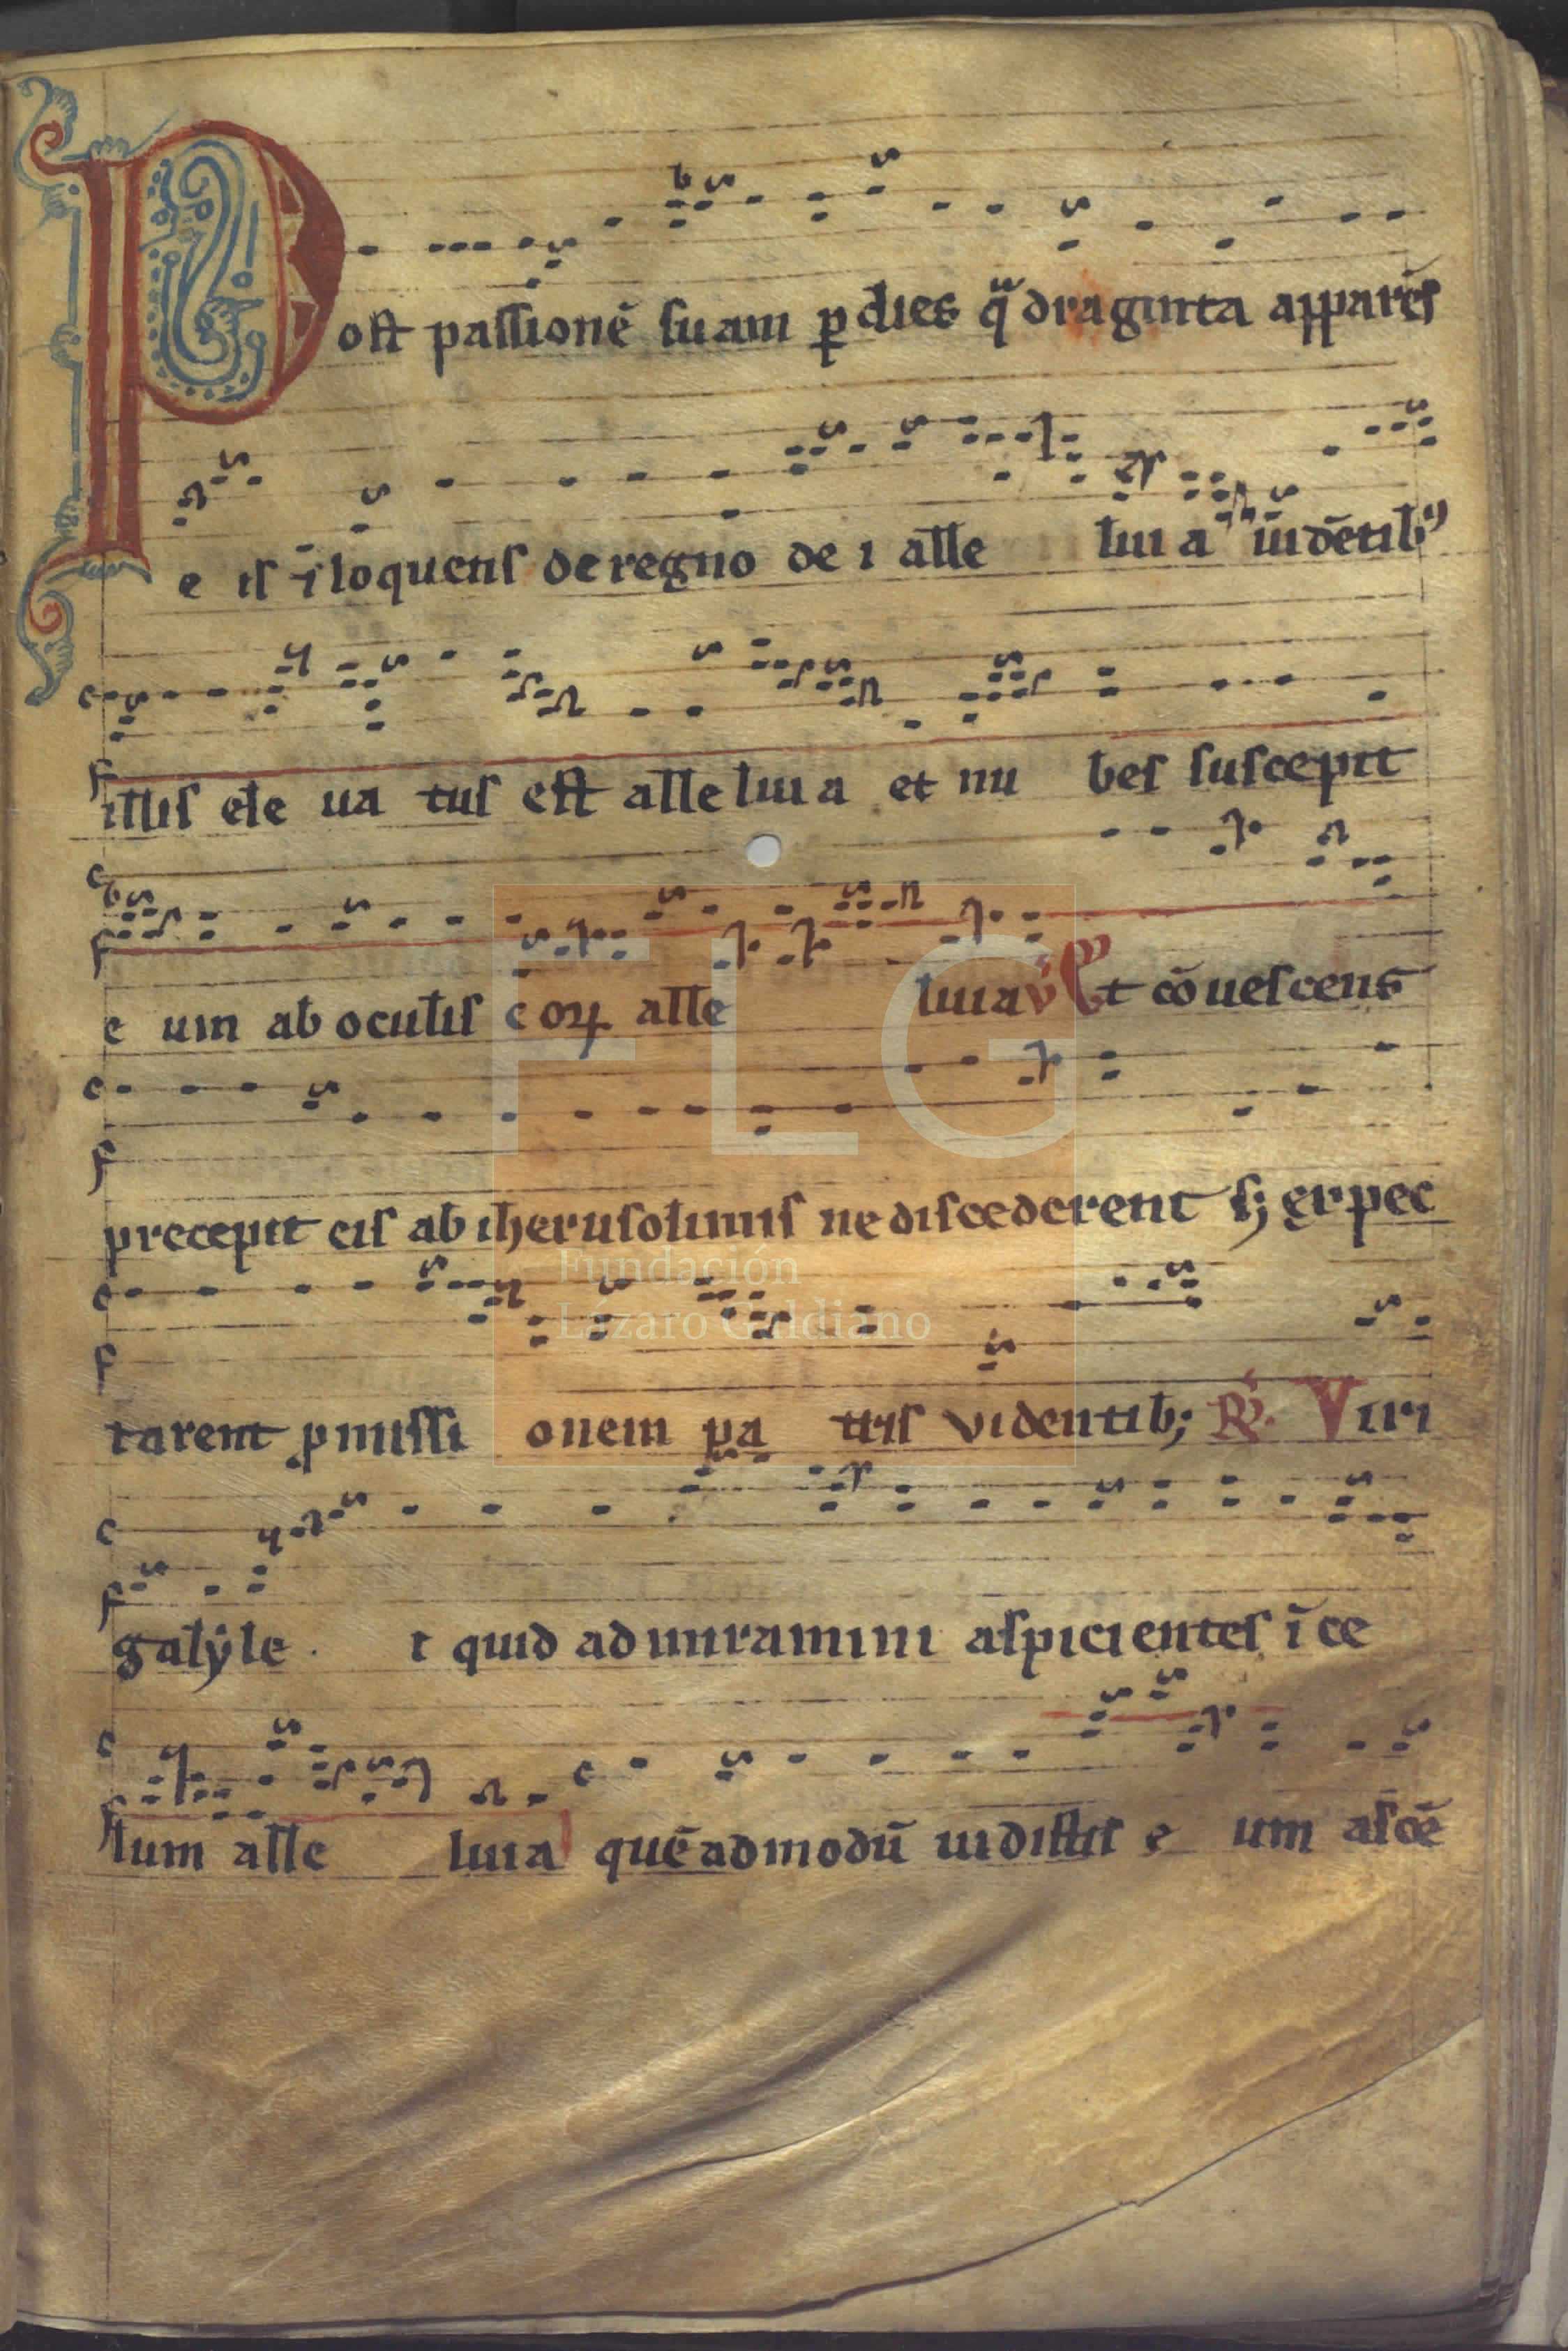 Post passionē suam ꝑ dies qͣdraginta apparēs
e is ⁊ loquens de regno de i alle luia uidētibꝰ
illis ele ua tus est alleluia et nu bes suscepit
e um ab oculis eoꝝ alle luia ℣ Et cōuescens
precepit eis ab iherusolimis ne discederent sꝫ expec
tarent ꝓmissi onem pa tris videntibꝫ ℟. Viri
galẏle i quid admiramini aspicientes ī ce
lum alle luia quēadmodū uidistis e um ascē
FLG
Fundación
Lázaro Galdiano